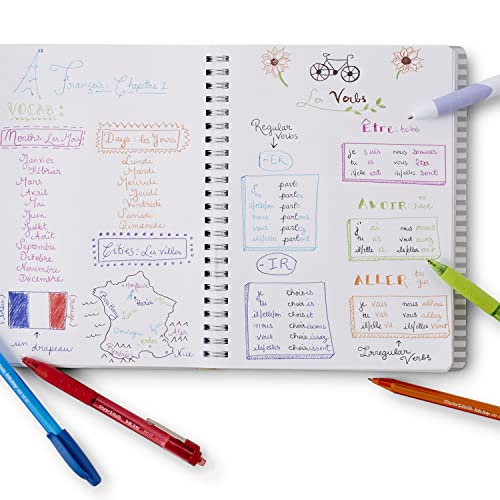 Français: Chapitre 1
VOCAB:
Months: Les Mois
Janvier
Février
Mars
Avril
Mai
Juin
Juillet
Août
Septembre
Octobre
Novembre
Décembre
un drapeau
Days: les Jours
Lundi
Mardi
Mercredi
Jeudi
Vendredi
Samedi
Dimanche
Cities: Les Villes
Paris
Nice
Les Verbs
Regular
Verbs
-ER
je parle
tu parles
il/elle/on parle
nous parlons
vous parlez
ils/elles parlent
-IR
je choisis
tu choisis
il/elle/on choisit
nous choisissons
vous choisissez
ils/elles choisissent
Être: to be
je suis nous sommes
tu es vous êtes
il/elle est ils/elles sont
AVOIR: to
j'ai nous avons
tu as vous avez
il/elle a ils/elles ont
ALLER to go
je vais nous allons
tu vas vous allez
il/elle va ils/elles vont
Irregular
Verbs